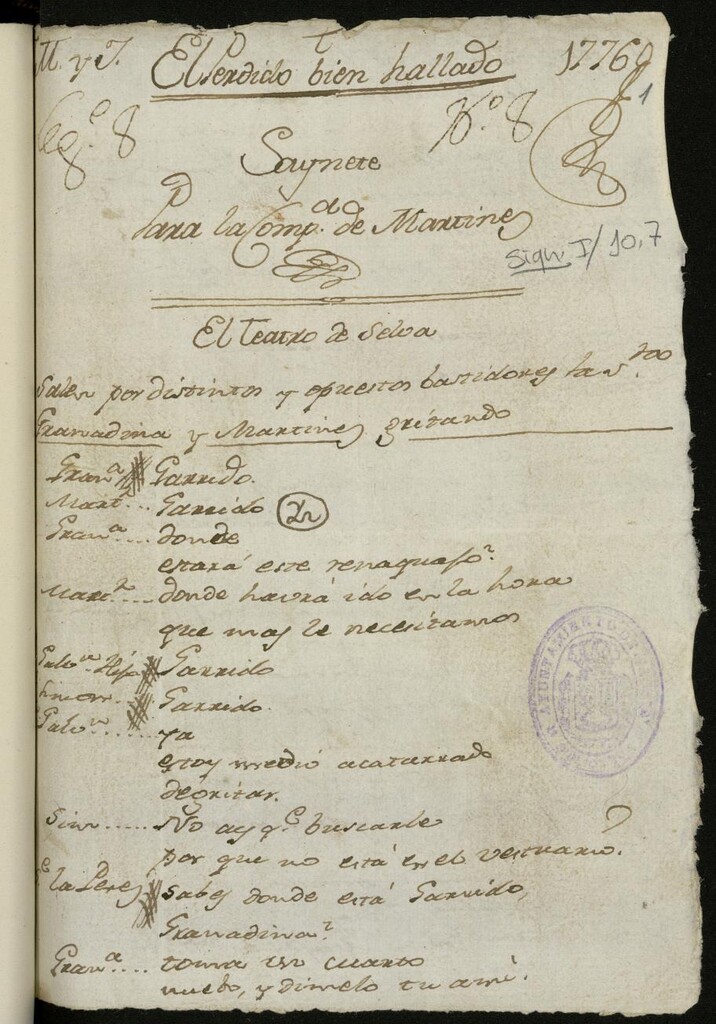 M. y T. El Perdido bien hallado 1776
Leg.º 8 N.º 8 1
Saynete
Para la Comp.a de Martinez
Sign. I/10,7
El Teatro de Selva
Salen por distintos y opuestos bastidores la S.ra
Granadina y Martinez gritando
Gran.a Garrido.
Mart.z ... Garrido
Gran.a .... donde
estará este renaquajo?
Mart.z .... donde havrá ido en la hora
que mas le necesitamos
Hijo Garrido
Simon .. Garrido.
ya
estoy medio acatarrado
degritar.
Sim ..... No ay q.e buscarle
por que no está en el vestuario.
la Perez Sabes donde está Garrido,
Granadina?
Gran.a .... toma un cuarto
nuebo, y dimelo tu a mi.
AYUNTAMIENTO DE